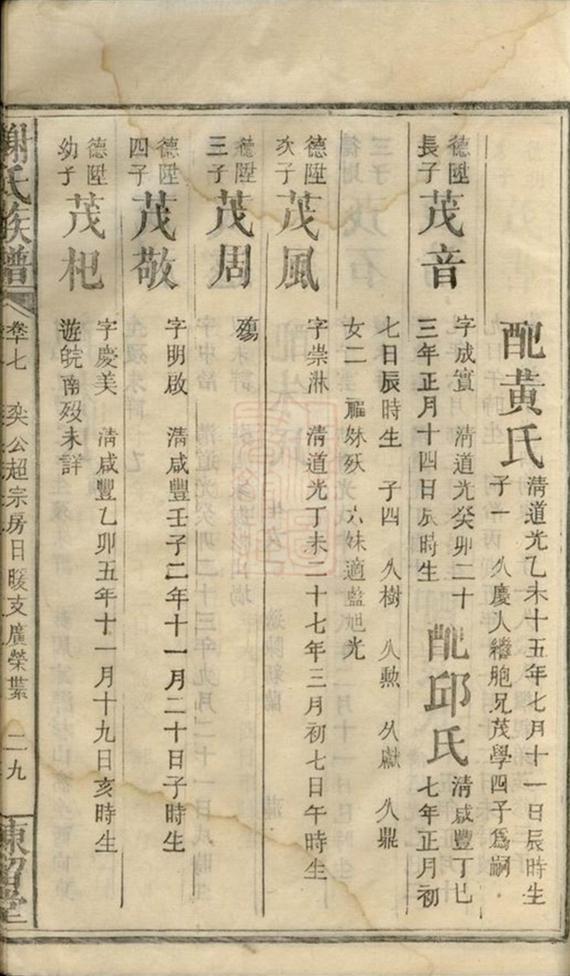 配黃氏 清道光乙未十五年七月十一日辰時生
子一 久慶入繼胞兄茂學四子爲嗣
德陞長子茂音 字成實 清道光癸卯二十三年正月十四日辰時生
配邱氏 清咸豐丁巳七年正月初七日辰時生 子四 久樹 久勲 久獻 久鼎
女二 福妹殀 六妹適藍旭光
德陞次子茂風 字崇淋 清道光丁未二十七年三月初七日午時生
德陞三子茂周 殤
德陞四子茂敬 字明啟 清咸豐壬子二年十一月二十日子時生
德陞幼子茂杞 字慶美 清咸豐乙卯五年十一月十九日亥時生
遊皖南歿未詳
謝氏族譜 卷十七 奕公超宗房日暖支廣榮業 二九